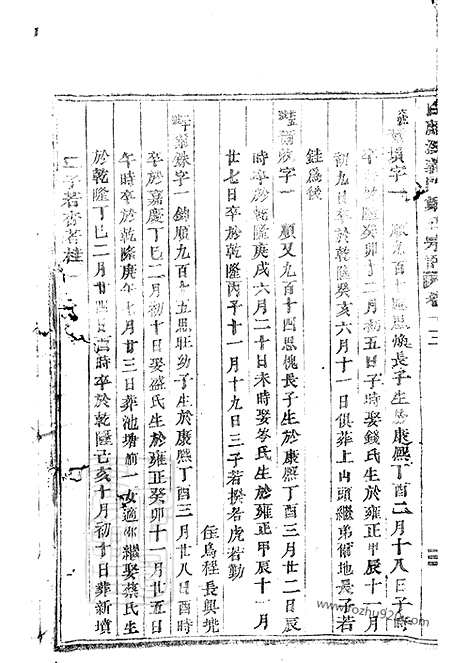 填字一 順九百十四思煥長子生於康熙丁酉二月十八日子時
卒於雍正癸卯十二月初五日子時娶錢氏生於雍正甲辰十月
初九日卒於乾隆癸亥六月十一日俱葬上山頭繼弟爾地長子若
銈為後
字一 順又九百十四思槐長子生於康熙丁酉三月廿二日辰
時卒於乾隆庚戌六月二十日未時娶岑氏生於雍正甲辰十一月
廿七日卒於乾隆丙子十一月十九日三子若揆若虎若勤
住烏程長興垅
字一 錦順九百十五思莊幼子生於康熙丁酉三月廿八日酉時
卒於嘉慶丁巳二月初十日娶盛氏生於雍正癸卯十一月廿五日
午時卒於乾隆庚午七月廿三日葬池塘前一女適 繼娶蔡氏生
於乾隆丁巳二月廿 日酉時卒於乾隆己亥十月初十日葬新墳
二子若杏若桂